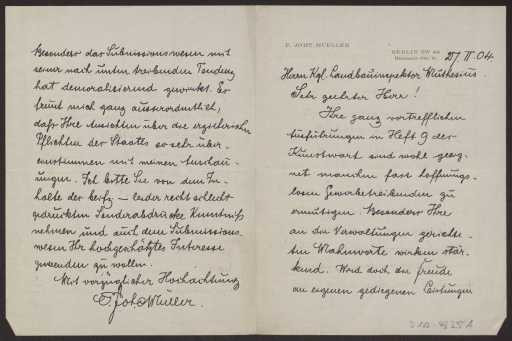 P. JOHT. MUELLER
BERLIN SW 48
27. II. 04.
Herrn Kgl. Landbauinspektor Muthesius.
Sehr geehrter Herr!
Ihre ganz vortrefflichen
Ausführungen in Heft 9 der
Kunstwart sind wohl geeig-
net manchen fast hoffnungs-
losen Gewerbetreibenden zu
ermutigen. Besonders Ihre
an die Verwaltungen gerichte-
ten Mahnworte wirken stär-
kend. Wird doch die Freude
an eigenen gediegenen Leistungen
Besonders das Submissionswesen mit
seiner nach unten treibenden Tendenz
hat demoralisierend gewirkt. Es
freut mich ganz ausserordentlich,
dass Ihre Ansichten über die erzieherischen
Pflichten des Staates so sehr über-
einstimmen mit meinen Anschau-
ungen. Ich bitte Sie von dem In-
halte der – leider recht schlecht
gedruckten Sonderabdrucke Kenntniß
nehmen und auch dem Submissions-
wesen Ihr hochgeschätztes Interesse
zuwenden zu wollen.
Mit vorzüglicher Hochachtung
Joh. Müller.